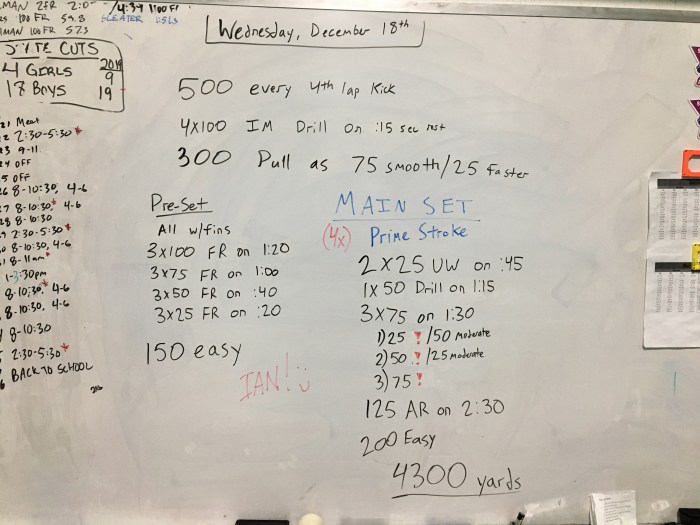 MAN 2FR 2:0
/4:39 1100 F1
100 FR 59.8
SLEATER
MAN 100 FR 57.5
CUTS
4 GIRLS
2019
9
17 BOYS
19
Meet
2:30-5:30*
9-11
OFF
OFF
8-10:30, 4-6
8-10:30,* 4-6
8-10:30
2:30-5:30*
8-10:30, 4-6
8-11am*
1-3:30pm
8-10:30,* 4-6
8-10:30, 4-6
8-10:30
2:30-5:30*
BACK TO SCHOOL
Wednesday, December 18th
500 every 4th lap Kick
4x100 IM Drill on :15 sec rest
300 Pull as 75 smooth/25 Faster
Pre-Set
All w/fins
3x100 FR on 1:20
3x75 FR on 1:00
3x50 FR on :40
3x25 FR on :20
150 easy
IAN! :)
MAIN SET
(4x) Prime Stroke
2x25 UW on :45
1x50 Drill on 1:15
3x75 on 1:30
1) 25 ! /50 moderate
2) 50 ! /25 moderate
3) 75 !
125 AR on 2:30
200 Easy
4300 yards